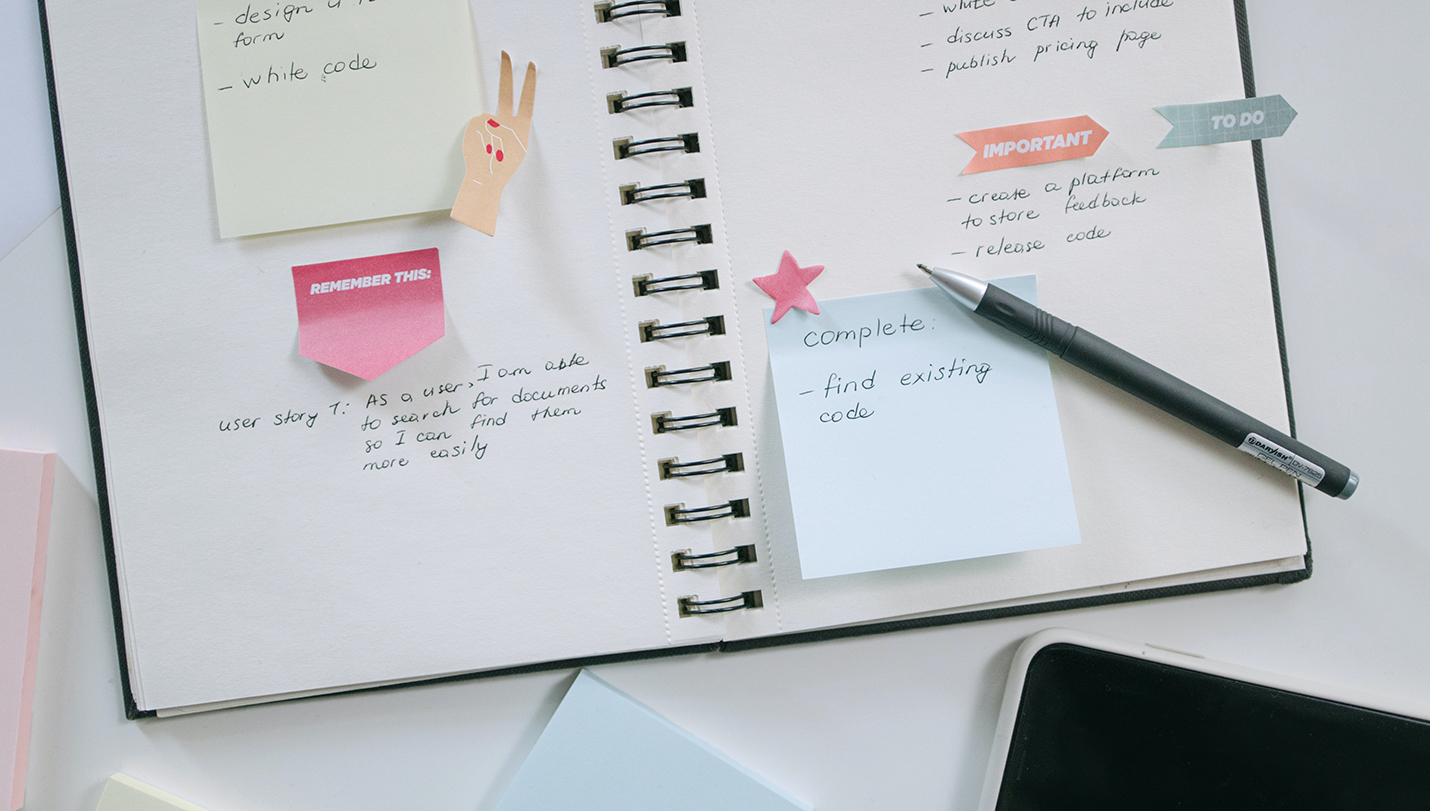 - design a
form
- white code
REMEMBER THIS:
user story 1: As a user, I am able
to search for documents
so I can find them
more easily
- white
- discuss CTA to include
- publish pricing page
IMPORTANT
TO DO
- create a platform
to store feedback
- release code
complete:
- find existing
code
DARVISH
GEL PEN